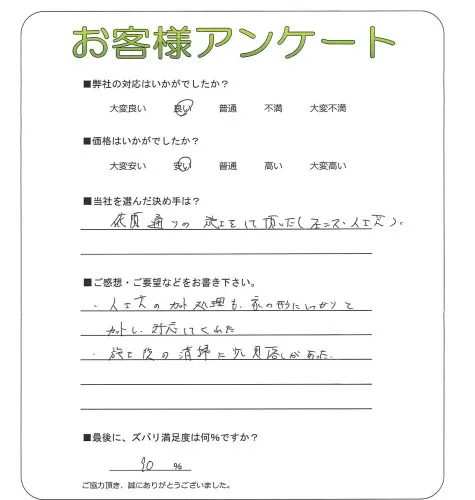 お客様アンケート
■弊社の対応はいかがでしたか？
大変良い 良い 普通 不満 大変不満
■価格はいかがでしたか？
大変安い 安い 普通 高い 大変高い
■当社を選んだ決め手は？
依頼通りの施工をして頂いた(フェンス・人工芝)。
■ご感想・ご要望などをお書き下さい。
・人工芝のカット処理も、家の形にしっかりと
カットし、対応してくれた
・施工後の清掃に少し見落しがあった。
■最後に、ズバリ満足度は何%ですか？
90 %
ご協力頂き、誠にありがとうございました。